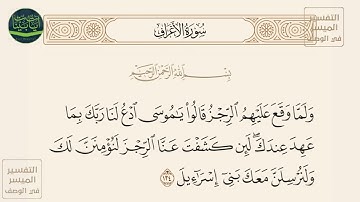 سُورَةُ الأَعْرَافِ
بِسْمِ اللَّهِ الرَّحْمَٰنِ الرَّحِيمِ
وَلَمَّا وَقَعَ عَلَيْهِمُ ٱلرِّجْزُ قَالُواْ يَٰمُوسَى ٱدْعُ لَنَا رَبَّكَ بِمَا
عَهِدَ عِندَكَۖ لَئِن كَشَفْتَ عَنَّا ٱلرِّجْزَ لَنُؤْمِنَنَّ لَكَ
وَلَنُرْسِلَنَّ مَعَكَ بَنِىٓ إِسْرَٰٓءِيلَ ١٣٤
التفسير
الميسر
في الوصف
التفسير
الميسر
في الوصف